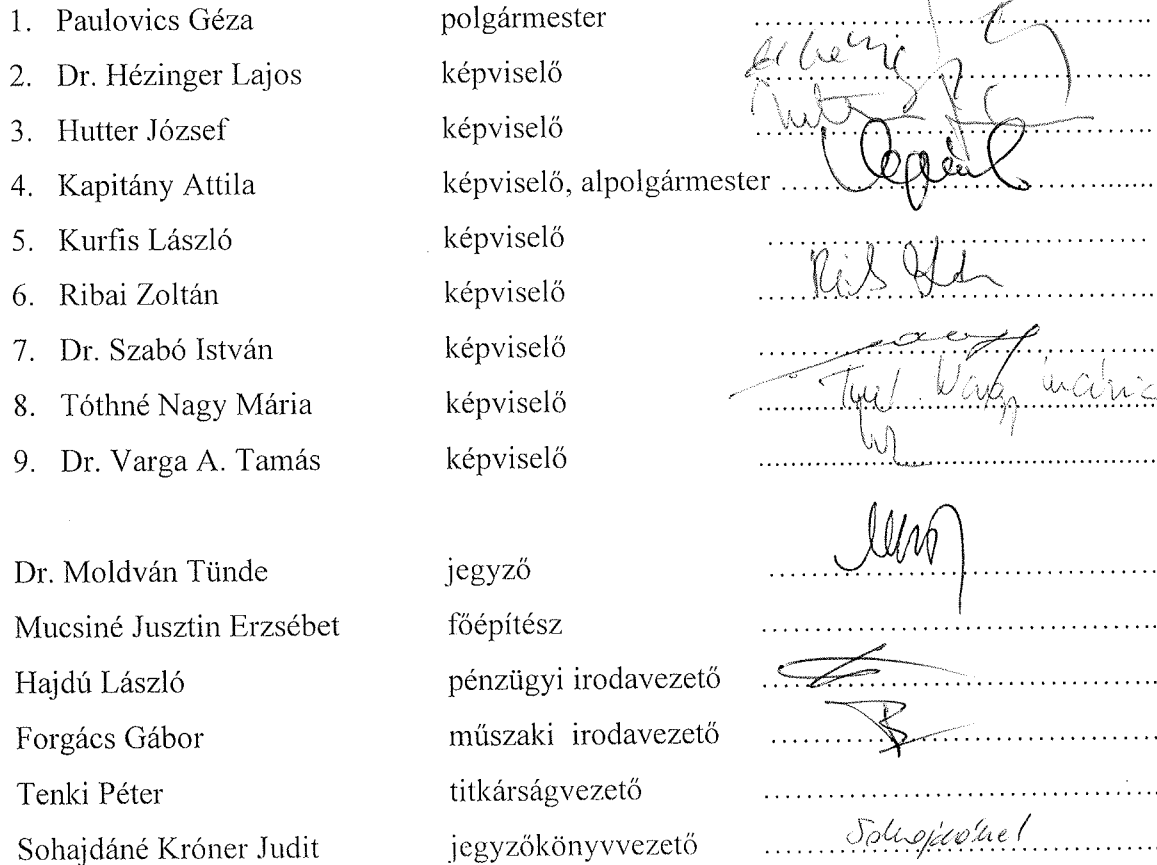 1. Paulovics Géza polgármester ........................................
2. Dr. Hézinger Lajos képviselő ........................................
3. Hutter József képviselő ........................................
4. Kapitány Attila képviselő, alpolgármester ........................................
5. Kurfis László képviselő ........................................
6. Ribai Zoltán képviselő ........................................
7. Dr. Szabó István képviselő ........................................
8. Tóthné Nagy Mária képviselő ........................................
9. Dr. Varga A. Tamás képviselő ........................................
Dr. Moldván Tünde jegyző ........................................
Mucsiné Jusztin Erzsébet főépítész ........................................
Hajdú László pénzügyi irodavezető ........................................
Forgács Gábor műszaki irodavezető ........................................
Tenki Péter titkárságvezető ........................................
Sohajdáné Króner Judit jegyzőkönyvvezető ........................................